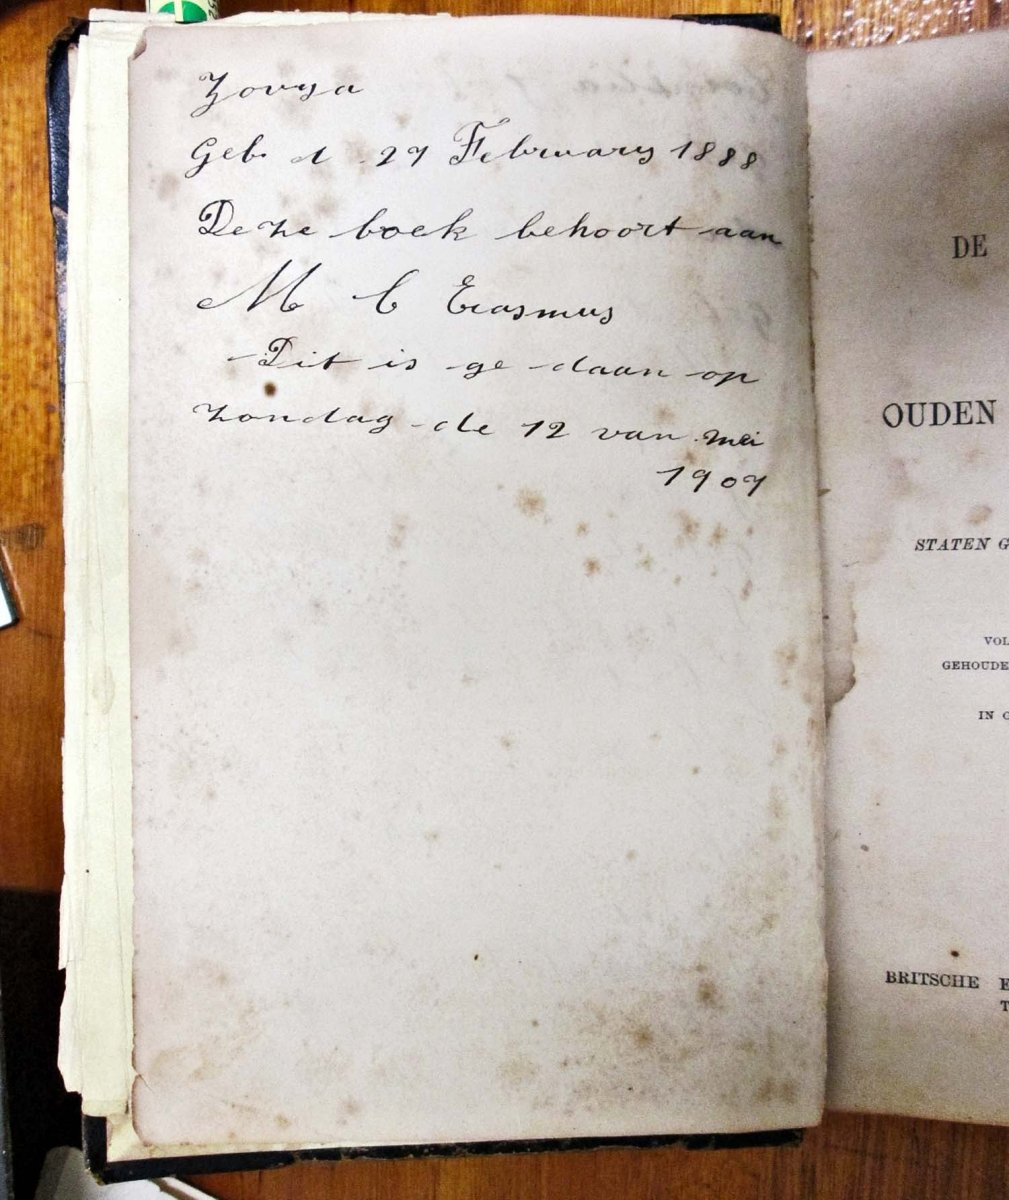 Zovya
Geb. d. 27 February 1888
Deze boek behoort aan
M C Erasmus
Dit is ge daan op
zondag de 12 van mei
1907
DE
OUDEN
STATEN G
VOL
GEHOUDE
IN
BRITSCHE E
T